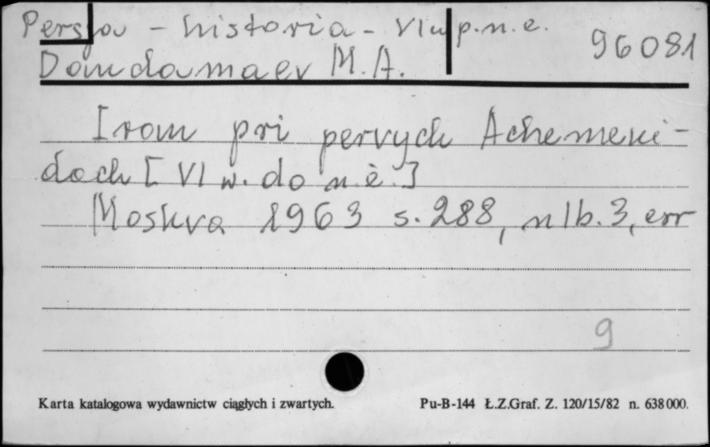 Persja - historia - VI w. p.n.e. 96081
Dandamaev M.A.
Iran pri pervych Achemeni-
dach [VI w. do n.è.]
Moskva 1963 s. 288, nlb. 3, err
9
Karta katalogowa wydawnictw ciągłych i zwartych. Pu-B-144 Ł.Z.Graf. Z. 120/15/82 n. 638 000.